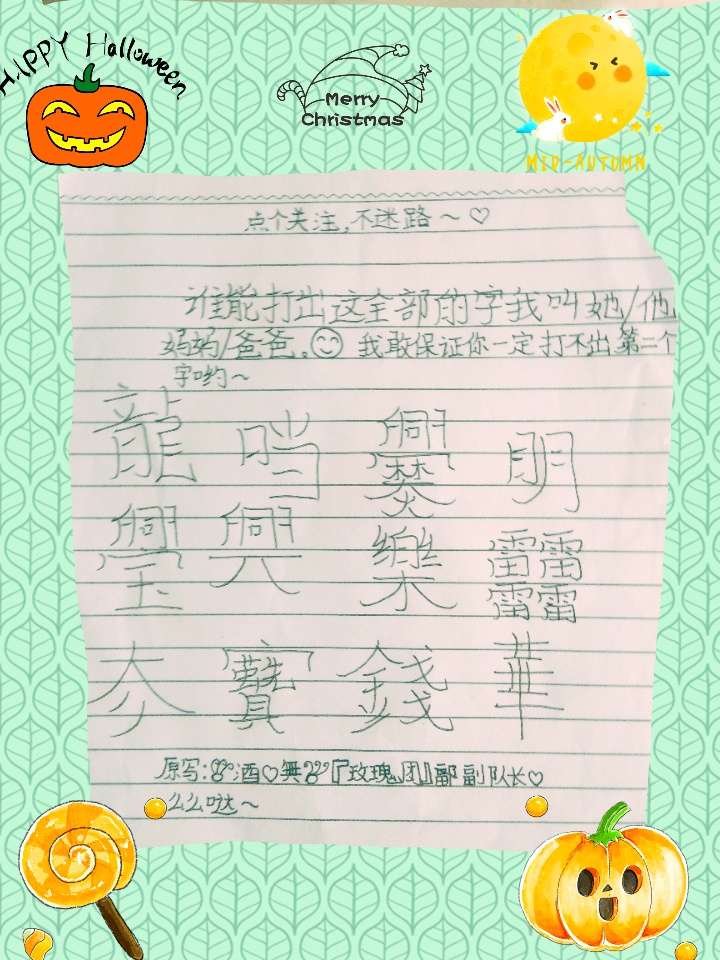 HAPPY Halloween
Merry
Christmas
MID-AUTUMN
点个关注,不迷路～♡
谁能打出这全部的字我叫她/他
妈妈/爸爸,☺我敢保证你一定打不出第二个
字哟～
龍 爨 明
興 樂 䨻
錢 華
原写:酒♡『玫瑰团』部副队长♡
么么哒～